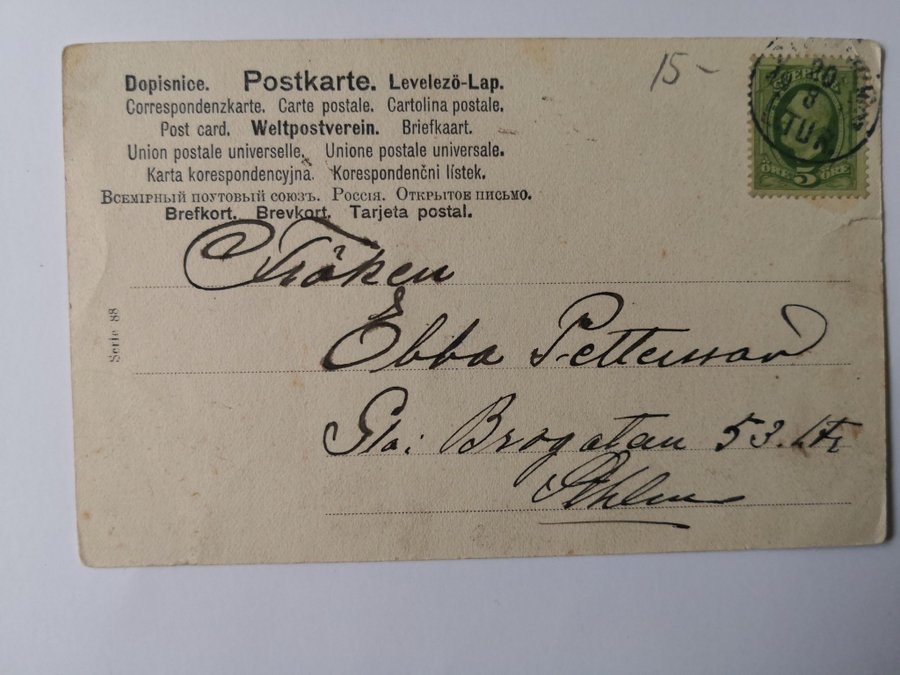 15-
Dopisnice. Postkarte. Levelezö-Lap.
Correspondenzkarte. Carte postale. Cartolina postale.
Post card. Weltpostverein. Briefkaart.
Union postale universelle. Unione postale universale.
Karta korespondencyjna. Korespondenčni lístek.
Всемірный поутовый союзъ. Россія. Открытое письмо.
Brefkort. Brevkort. Tarjeta postal.
SVERIGE
20
8
TUR
5
ÖRE ÖRE
Fröken
Ebba Pettersson
Gla: Brogatan 53. 4tr
Sthlm
Serie 88